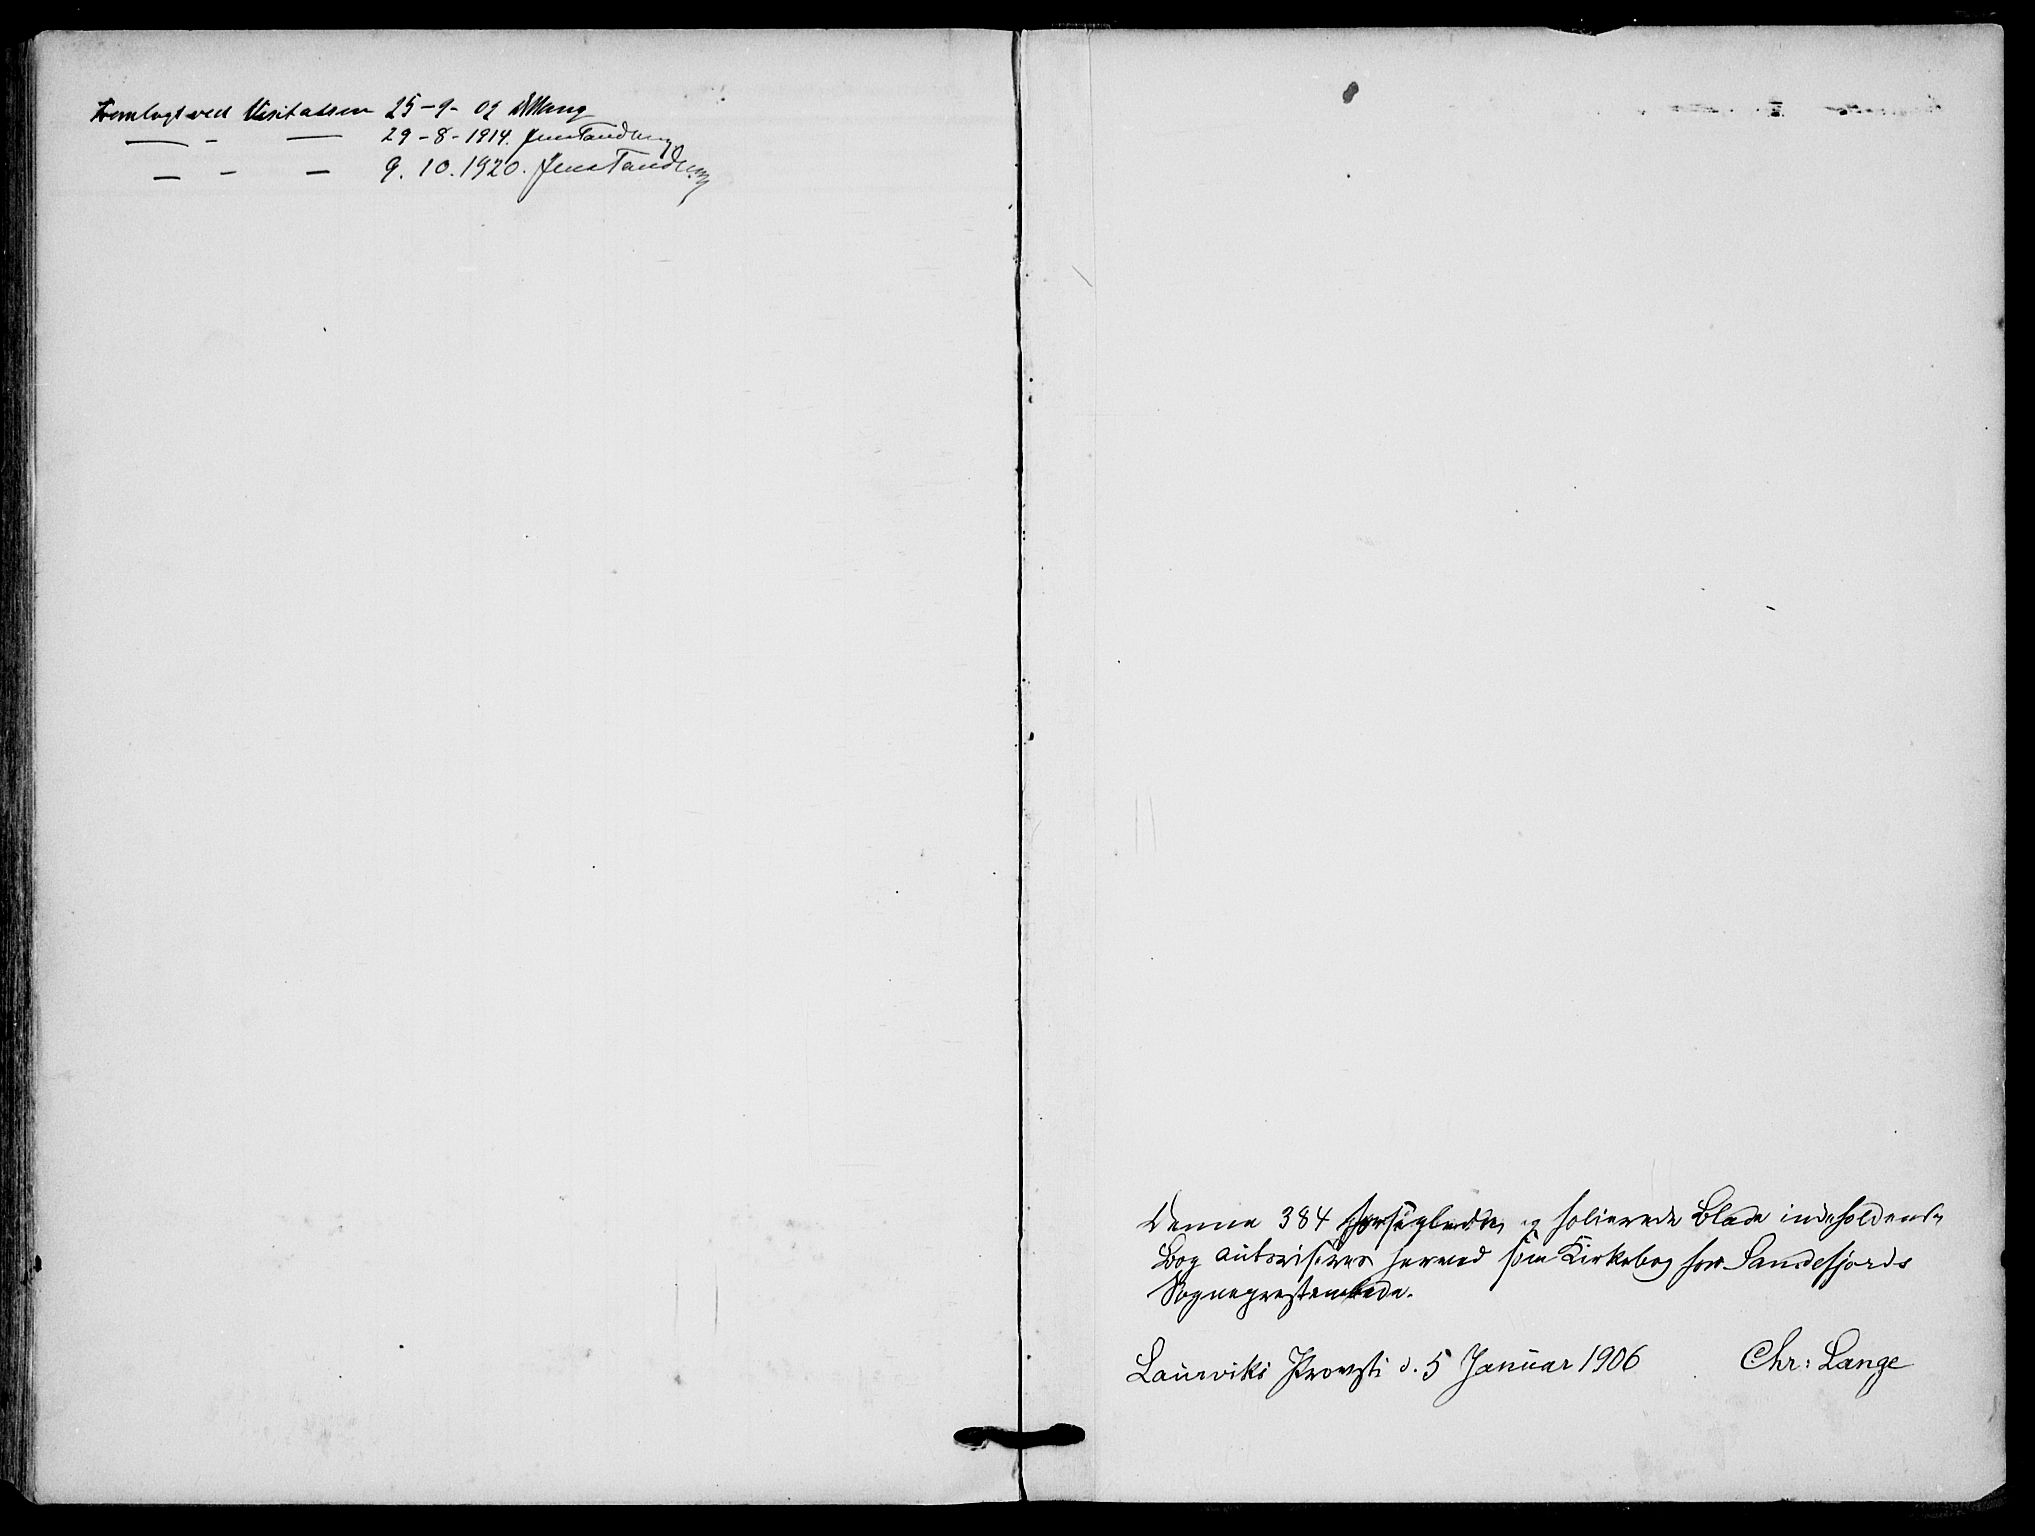 Fremlagt ved Visitatsen 25-9-09
— - — 29-8-1914. Jens Tandberg
— - — 9.10.1920. Jens Tandberg
Denne 384 og folierede Blade indeholdende
Bog autoriseres herved som Kirkebog for Sandefjords
Sogneprestembede.
Laurviks Provsti d. 5 Januar 1906 Chr: Lange